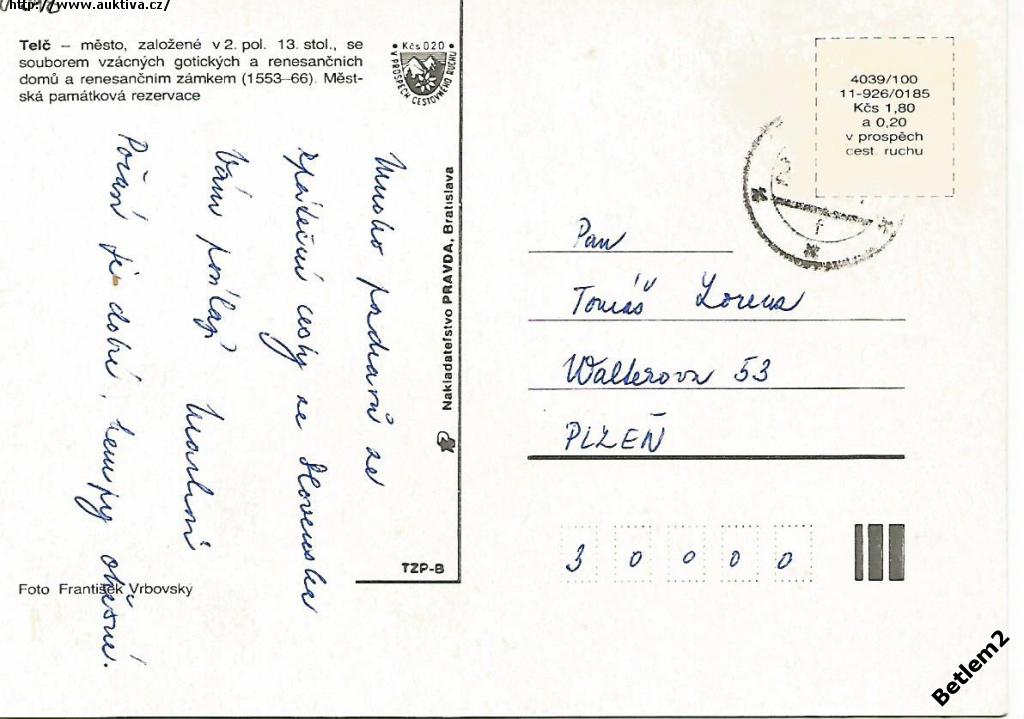 http://www.auktiva.cz/
Telč – město, založené v 2. pol. 13. stol., se
souborem vzácných gotických a renesančních
domů a renesančním zámkem (1553–66). Měst-
ská památková rezervace
Kčs 020
V PROSPĚCH CESTOVNÉHO RUCHU
4039/100
11-926/0185
Kčs 1,80
a 0,20
v prospěch
cest. ruchu
Mnoho pozdravů ze
zpáteční cesty ze Slovenska
Vám posílají
Počasí je dobré, kempy obsazné.
Nakladateľstvo PRAVDA, Bratislava
TZP-B
Foto František Vrbovský
Pan
Tomáš Lorenz
Walterova 53
PLZEŇ
3 0 0 0 0
Betlem2